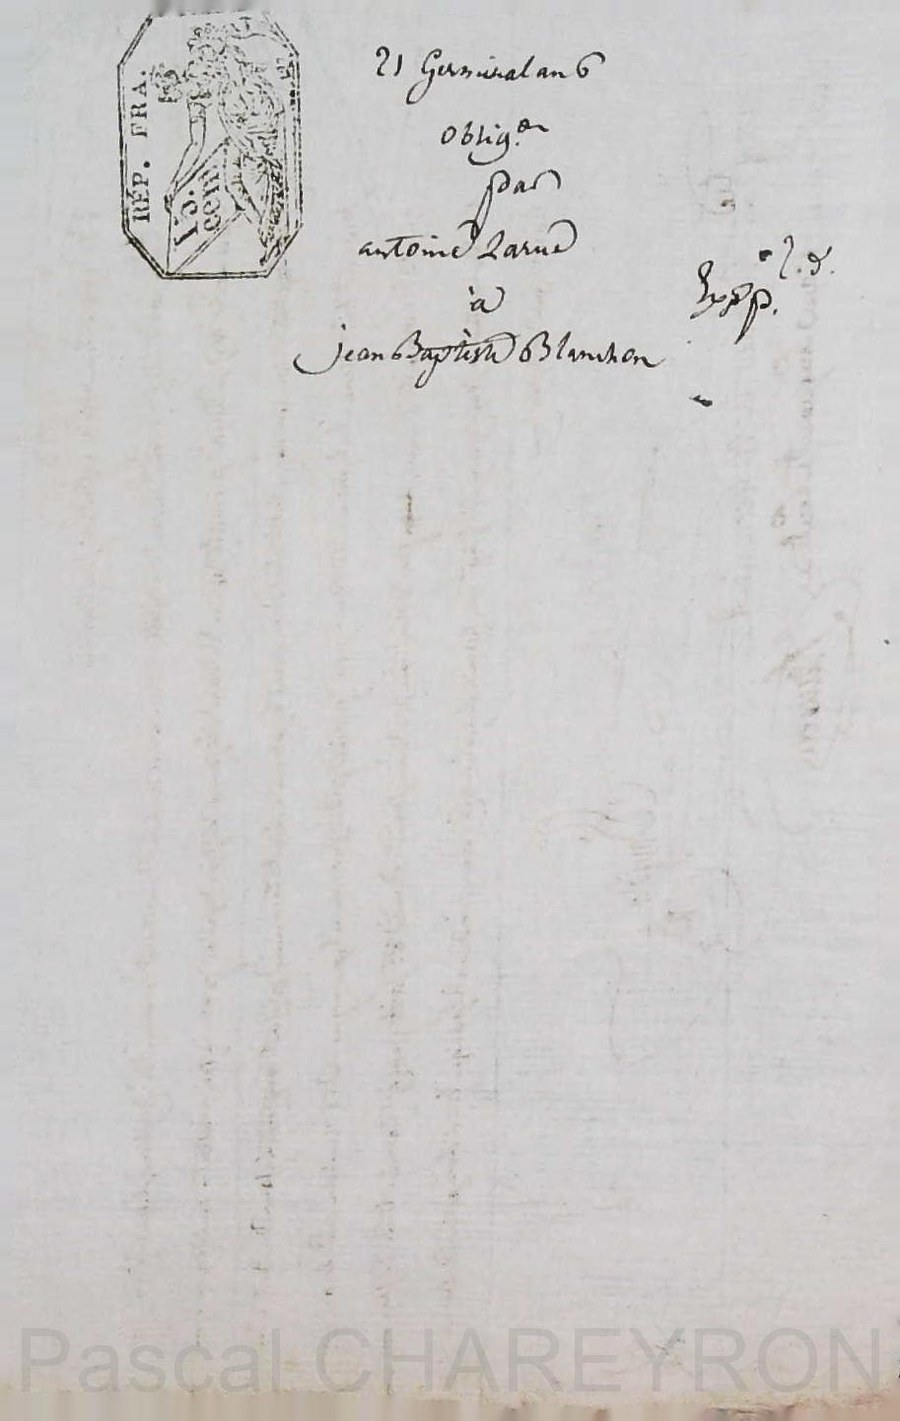 RÉP. FRA.
cem.
21 Germinal an 6
oblig.on
par
antoine Larue
à
jean Baptiste Blanchon
Exp.
Pascal CHAREYRON